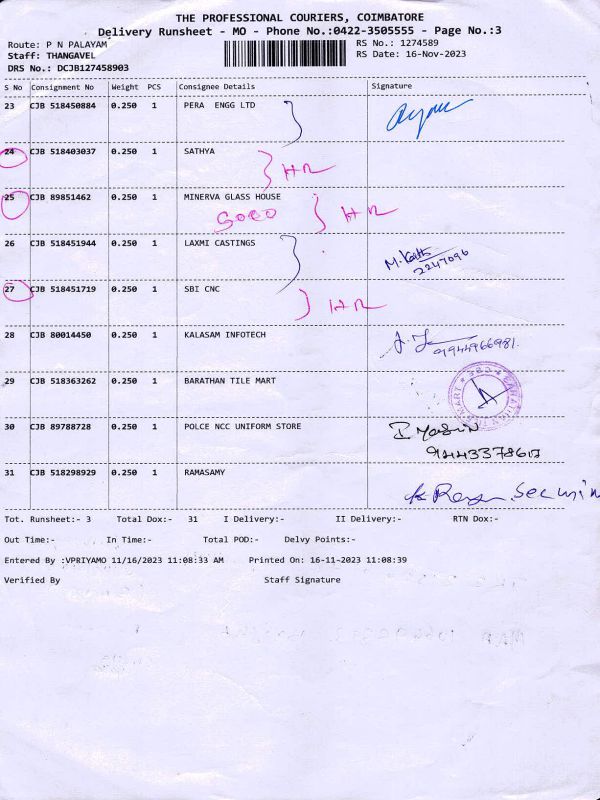 THE PROFESSIONAL COURIERS, COIMBATORE
Delivery Runsheet - MO - Phone No.:0422-3505555 - Page No.:3
Route: P N PALAYAM
RS No.: 1274589
Staff: THANGAVEL
RS Date: 16-Nov-2023
DRS No.: DCJB127458903
S No Consignment No Weight PCS Consignee Details Signature
23 CJB 518450884 0.250 1 PERA ENGG LTD
24 CJB 518403037 0.250 1 SATHYA
HR
25 CJB 89851462 0.250 1 MINERVA GLASS HOUSE
HR
26 CJB 518451944 0.250 1 LAXMI CASTINGS
2247096
27 CJB 518451719 0.250 1 SBI CNC
HR
28 CJB 80014450 0.250 1 KALASAM INFOTECH
9944966981
29 CJB 518363262 0.250 1 BARATHAN TILE MART
30 CJB 89788728 0.250 1 POLCE NCC UNIFORM STORE
31 CJB 518298929 0.250 1 RAMASAMY
Tot. Runsheet:- 3 Total Dox:- 31 I Delivery:- II Delivery:- RTN Dox:-
Out Time:- In Time:- Total POD:- Delvy Points:-
Entered By :VPRIYAMO 11/16/2023 11:08:33 AM Printed On: 16-11-2023 11:08:39
Verified By Staff Signature